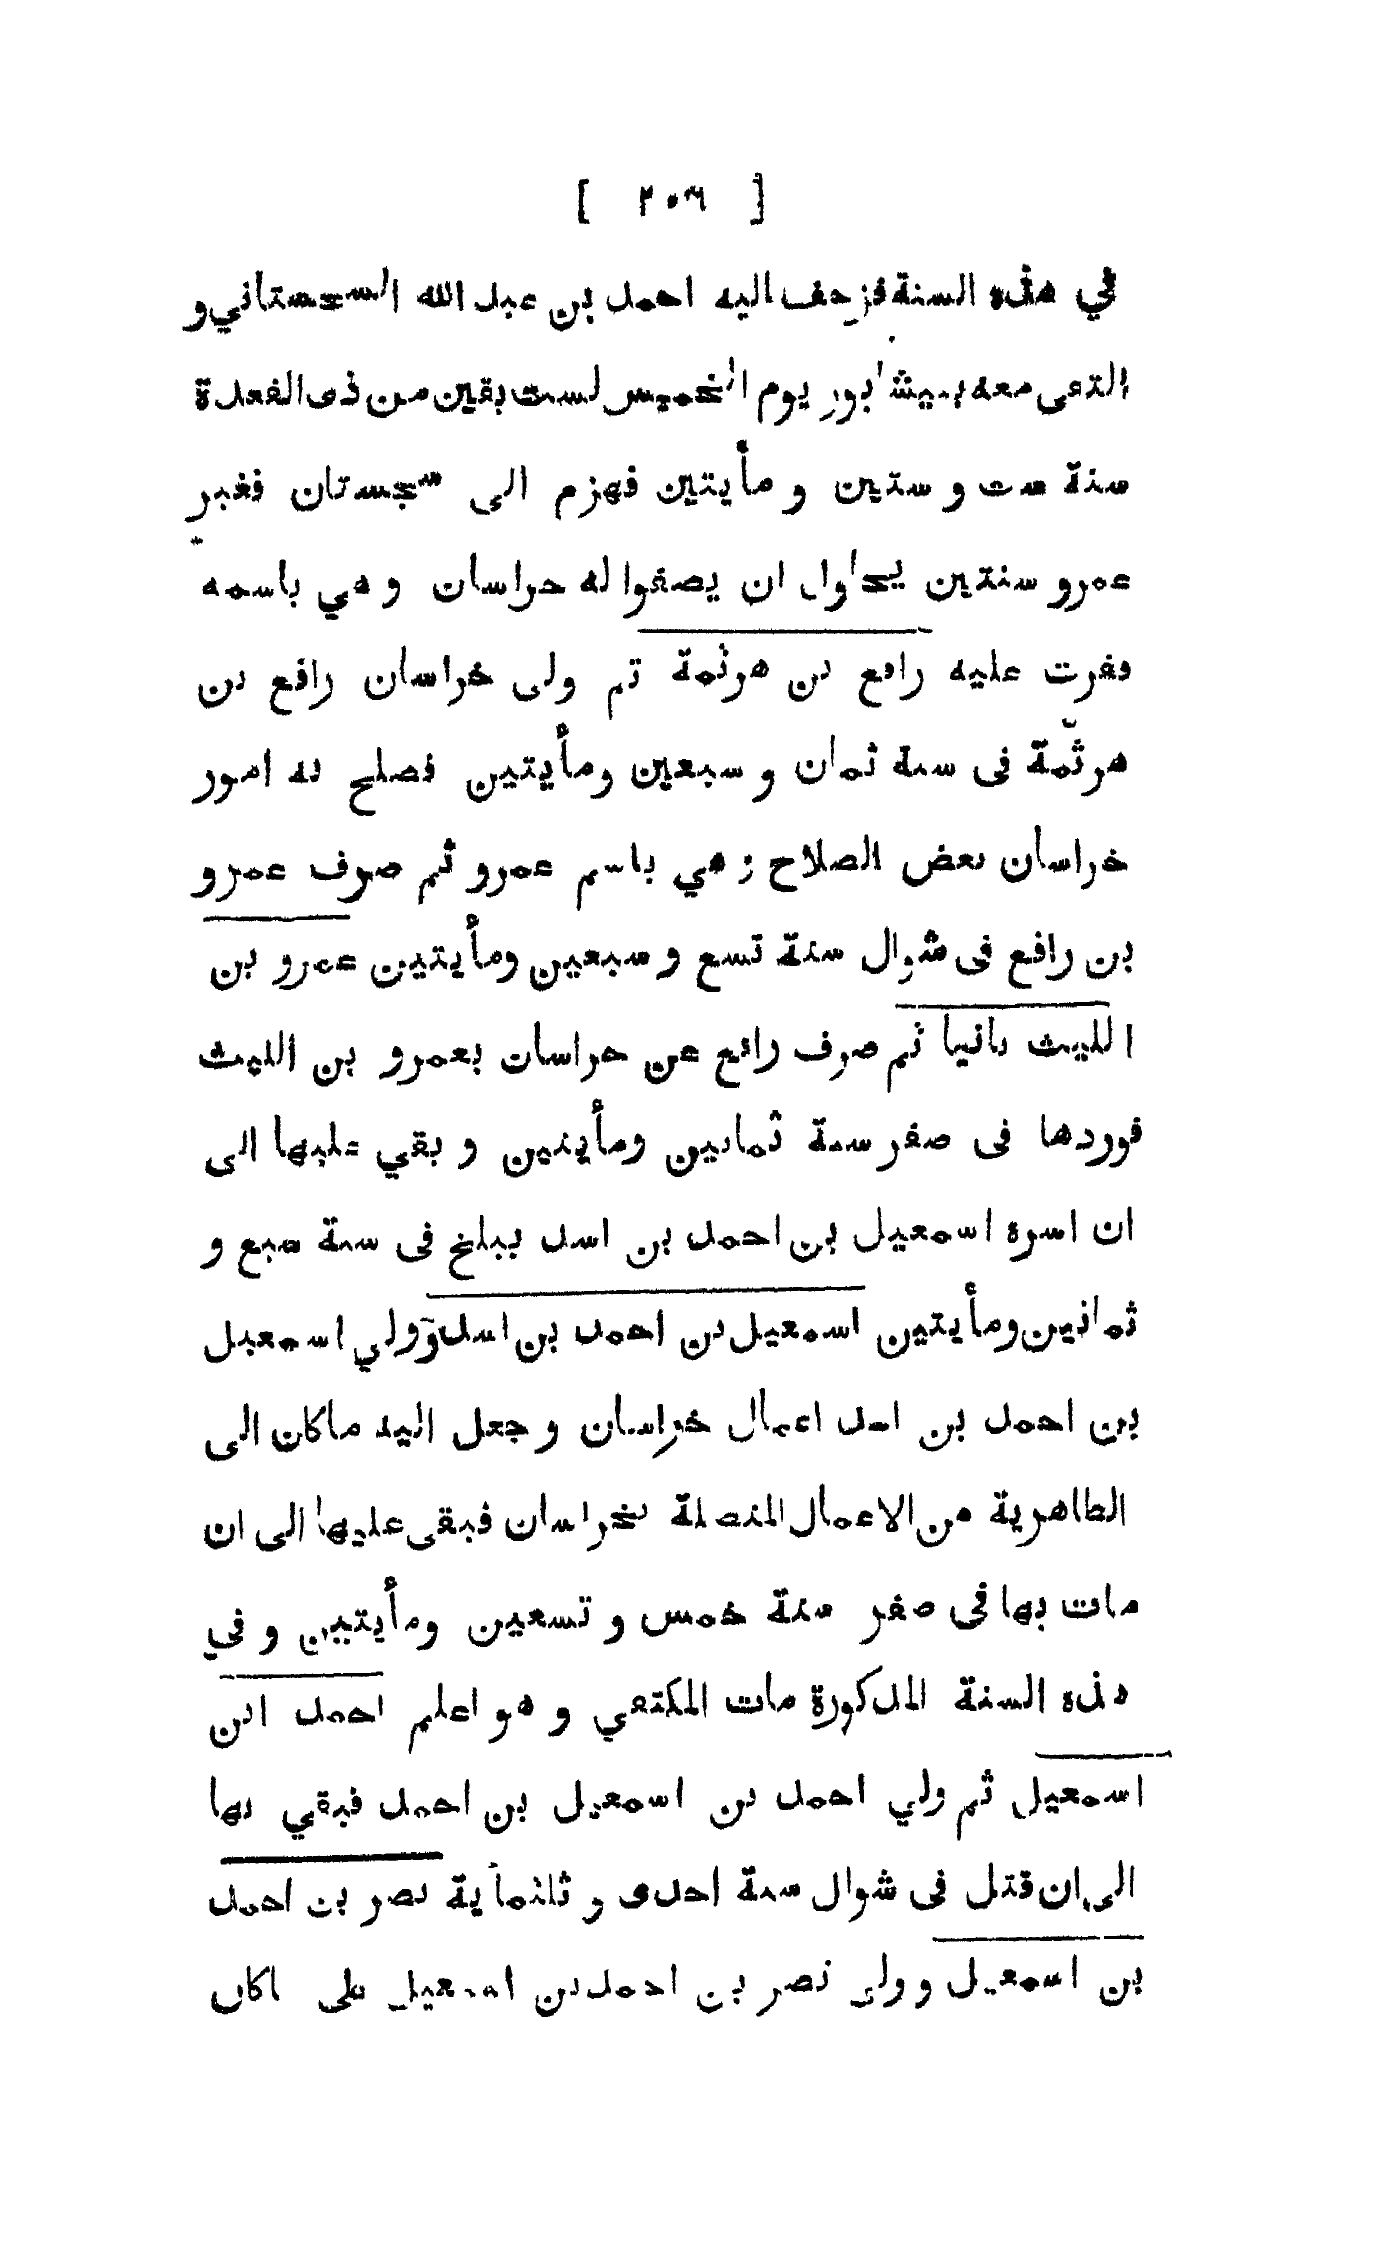 [ ٢٠٦ ]
في هذه السنة فزحف اليه احمد بن عبد الله السجستاني و
التقى معه بنيشابور يوم الخميس لست بقين من ذى القعدة
سنة ست و ستين و مأيتين فهزم الى سجستان فغبر
عمرو سنتين يحاول ان يصفوا له خراسان و هي باسمه
ففرت عليه رافع بن هرثمة ثم ولى خراسان رافع بن
هرثمة فى سنة ثمان و سبعين ومأيتين فصلح له امور
خراسان بعض الصلاح و هي باسم عمرو ثم صرف عمرو
بن رافع فى شوال سنة تسع و سبعين ومأيتين عمرو بن
الليث ثانيا ثم صرف رافع عن خراسان بعمرو بن الليث
فوردها فى صفر سنة ثمانين ومأيتين و بقي عليها الى
ان اسره اسمعيل بن احمد بن اسد ببلخ فى سنة سبع و
ثمانين ومأيتين اسمعيل بن احمد بن اسد وولي اسمعيل
بن احمد بن اسد اعمال خراسان و جعل اليه ماكان الى
الطاهرية من الاعمال المتصلة بخراسان فبقى عليها الى ان
مات بها فى صفر سنة خمس و تسعين ومأيتين و في
هذه السنة المذكورة مات المكتفي و هو اعلم احمد ابن
اسمعيل ثم ولي احمد بن اسمعيل بن احمد فبقي بها
الى ان قتل فى شوال سنة احدى و ثلثمأية نصر بن احمد
بن اسمعيل و ولى نصر بن احمد بن اسمعيل على ماكان